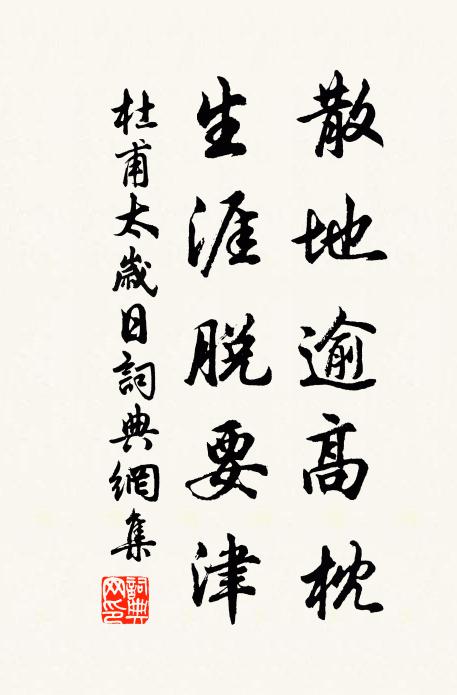 散地逾高枕
生涯脱要津
杜甫太歲日詞典網集
詞典網印